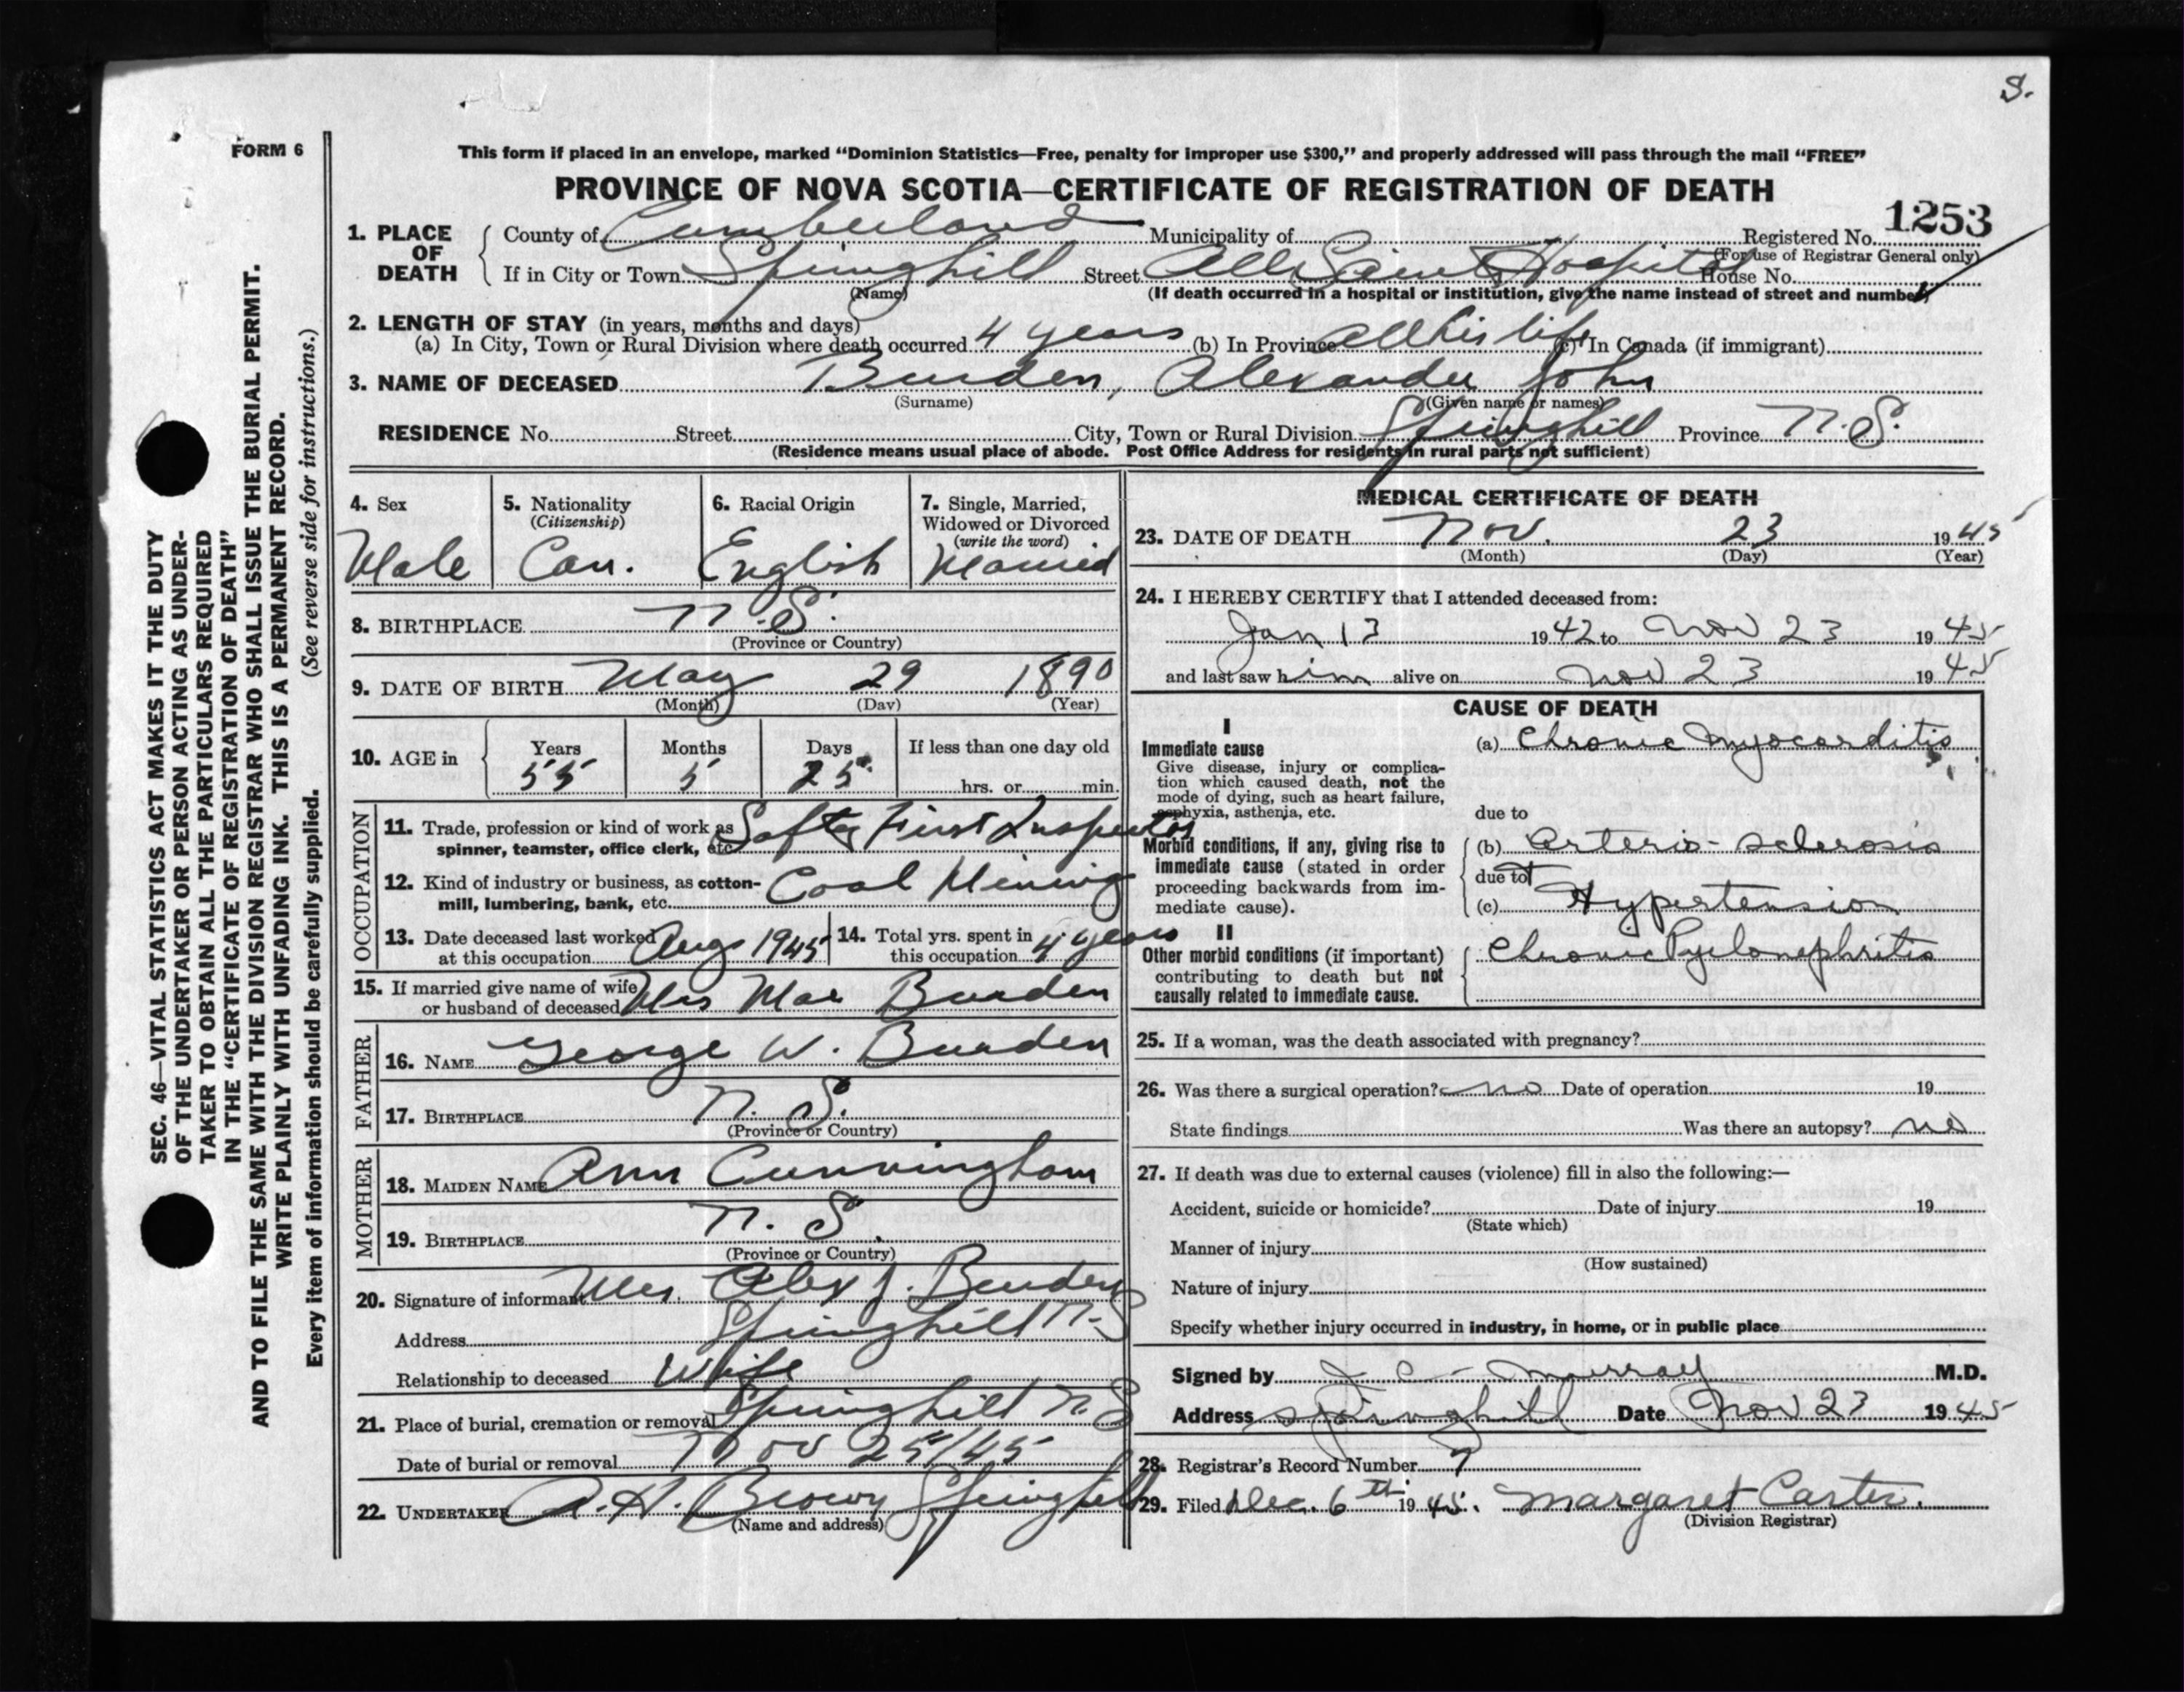 S.
FORM 6
This form if placed in an envelope, marked “Dominion Statistics—Free, penalty for improper use $300,” and properly addressed will pass through the mail “FREE”
PROVINCE OF NOVA SCOTIA—CERTIFICATE OF REGISTRATION OF DEATH
1253
1. PLACE OF DEATH
County of Cumberland Municipality of Registered No.
(For use of Registrar General only)
If in City or Town Springhill Street All Saints Hospital House No.
(Name) (If death occurred in a hospital or institution, give the name instead of street and number)
2. LENGTH OF STAY (in years, months and days)
(a) In City, Town or Rural Division where death occurred 4 years (b) In Province All his life (c) In Canada (if immigrant)
3. NAME OF DECEASED Burden, Alexander John
(Surname) (Given name or names)
RESIDENCE No. Street City, Town or Rural Division Springhill Province N.S.
(Residence means usual place of abode. Post Office Address for residents in rural parts not sufficient)
4. Sex Male
5. Nationality (Citizenship) Can.
6. Racial Origin English
7. Single, Married, Widowed or Divorced (write the word) Married
8. BIRTHPLACE N.S.
(Province or Country)
9. DATE OF BIRTH May 29 1890
(Month) (Day) (Year)
10. AGE in Years 55 Months 5 Days 25 If less than one day old hrs. or min.
OCCUPATION
11. Trade, profession or kind of work as Safty First Inspector
spinner, teamster, office clerk, etc.
12. Kind of industry or business, as cotton- Coal Mining
mill, lumbering, bank, etc.
13. Date deceased last worked at this occupation Aug 1945
14. Total yrs. spent in this occupation 4 years
15. If married give name of wife or husband of deceased Mrs Mae Burden
FATHER
16. NAME George W. Burden
17. BIRTHPLACE N.S.
(Province or Country)
MOTHER
18. MAIDEN NAME Ann Cunningham
19. BIRTHPLACE N.S.
(Province or Country)
20. Signature of informant Mrs. Alex J. Burden
Address Springhill N.S
Relationship to deceased Wife
21. Place of burial, cremation or removal Springhill N.S
Date of burial or removal Nov 25/45
22. UNDERTAKER A.H. Brown Springhill
(Name and address)
MEDICAL CERTIFICATE OF DEATH
23. DATE OF DEATH Nov. 23 1945
(Month) (Day) (Year)
24. I HEREBY CERTIFY that I attended deceased from:
Jan 13 1942 to Nov 23 1945
and last saw him alive on Nov 23 1945
CAUSE OF DEATH
I
Immediate cause
Give disease, injury or complica-
tion which caused death, not the
mode of dying, such as heart failure,
asphyxia, asthenia, etc.
(a) Chronic Myocarditis
due to
Morbid conditions, if any, giving rise to
immediate cause (stated in order
proceeding backwards from im-
mediate cause).
(b) Arterio-sclerosis
due to
(c) Hypertension
II
Other morbid conditions (if important)
contributing to death but not
causally related to immediate cause.
Chronic Pyelonephritis
25. If a woman, was the death associated with pregnancy?
26. Was there a surgical operation? no Date of operation 19
State findings Was there an autopsy? no
27. If death was due to external causes (violence) fill in also the following:—
Accident, suicide or homicide? Date of injury 19
(State which)
Manner of injury
(How sustained)
Nature of injury
Specify whether injury occurred in industry, in home, or in public place
Signed by J C Murray M.D.
Address Springhill Date Nov 23 1945
28. Registrar's Record Number 7
29. Filed Dec. 6th 1945. Margaret Carter.
(Division Registrar)
SEC. 46—VITAL STATISTICS ACT MAKES IT THE DUTY
OF THE UNDERTAKER OR PERSON ACTING AS UNDER-
TAKER TO OBTAIN ALL THE PARTICULARS REQUIRED
IN THE “CERTIFICATE OF REGISTRATION OF DEATH”
AND TO FILE THE SAME WITH THE DIVISION REGISTRAR WHO SHALL ISSUE THE BURIAL PERMIT.
WRITE PLAINLY WITH UNFADING INK. THIS IS A PERMANENT RECORD.
Every item of information should be carefully supplied. (See reverse side for instructions.)